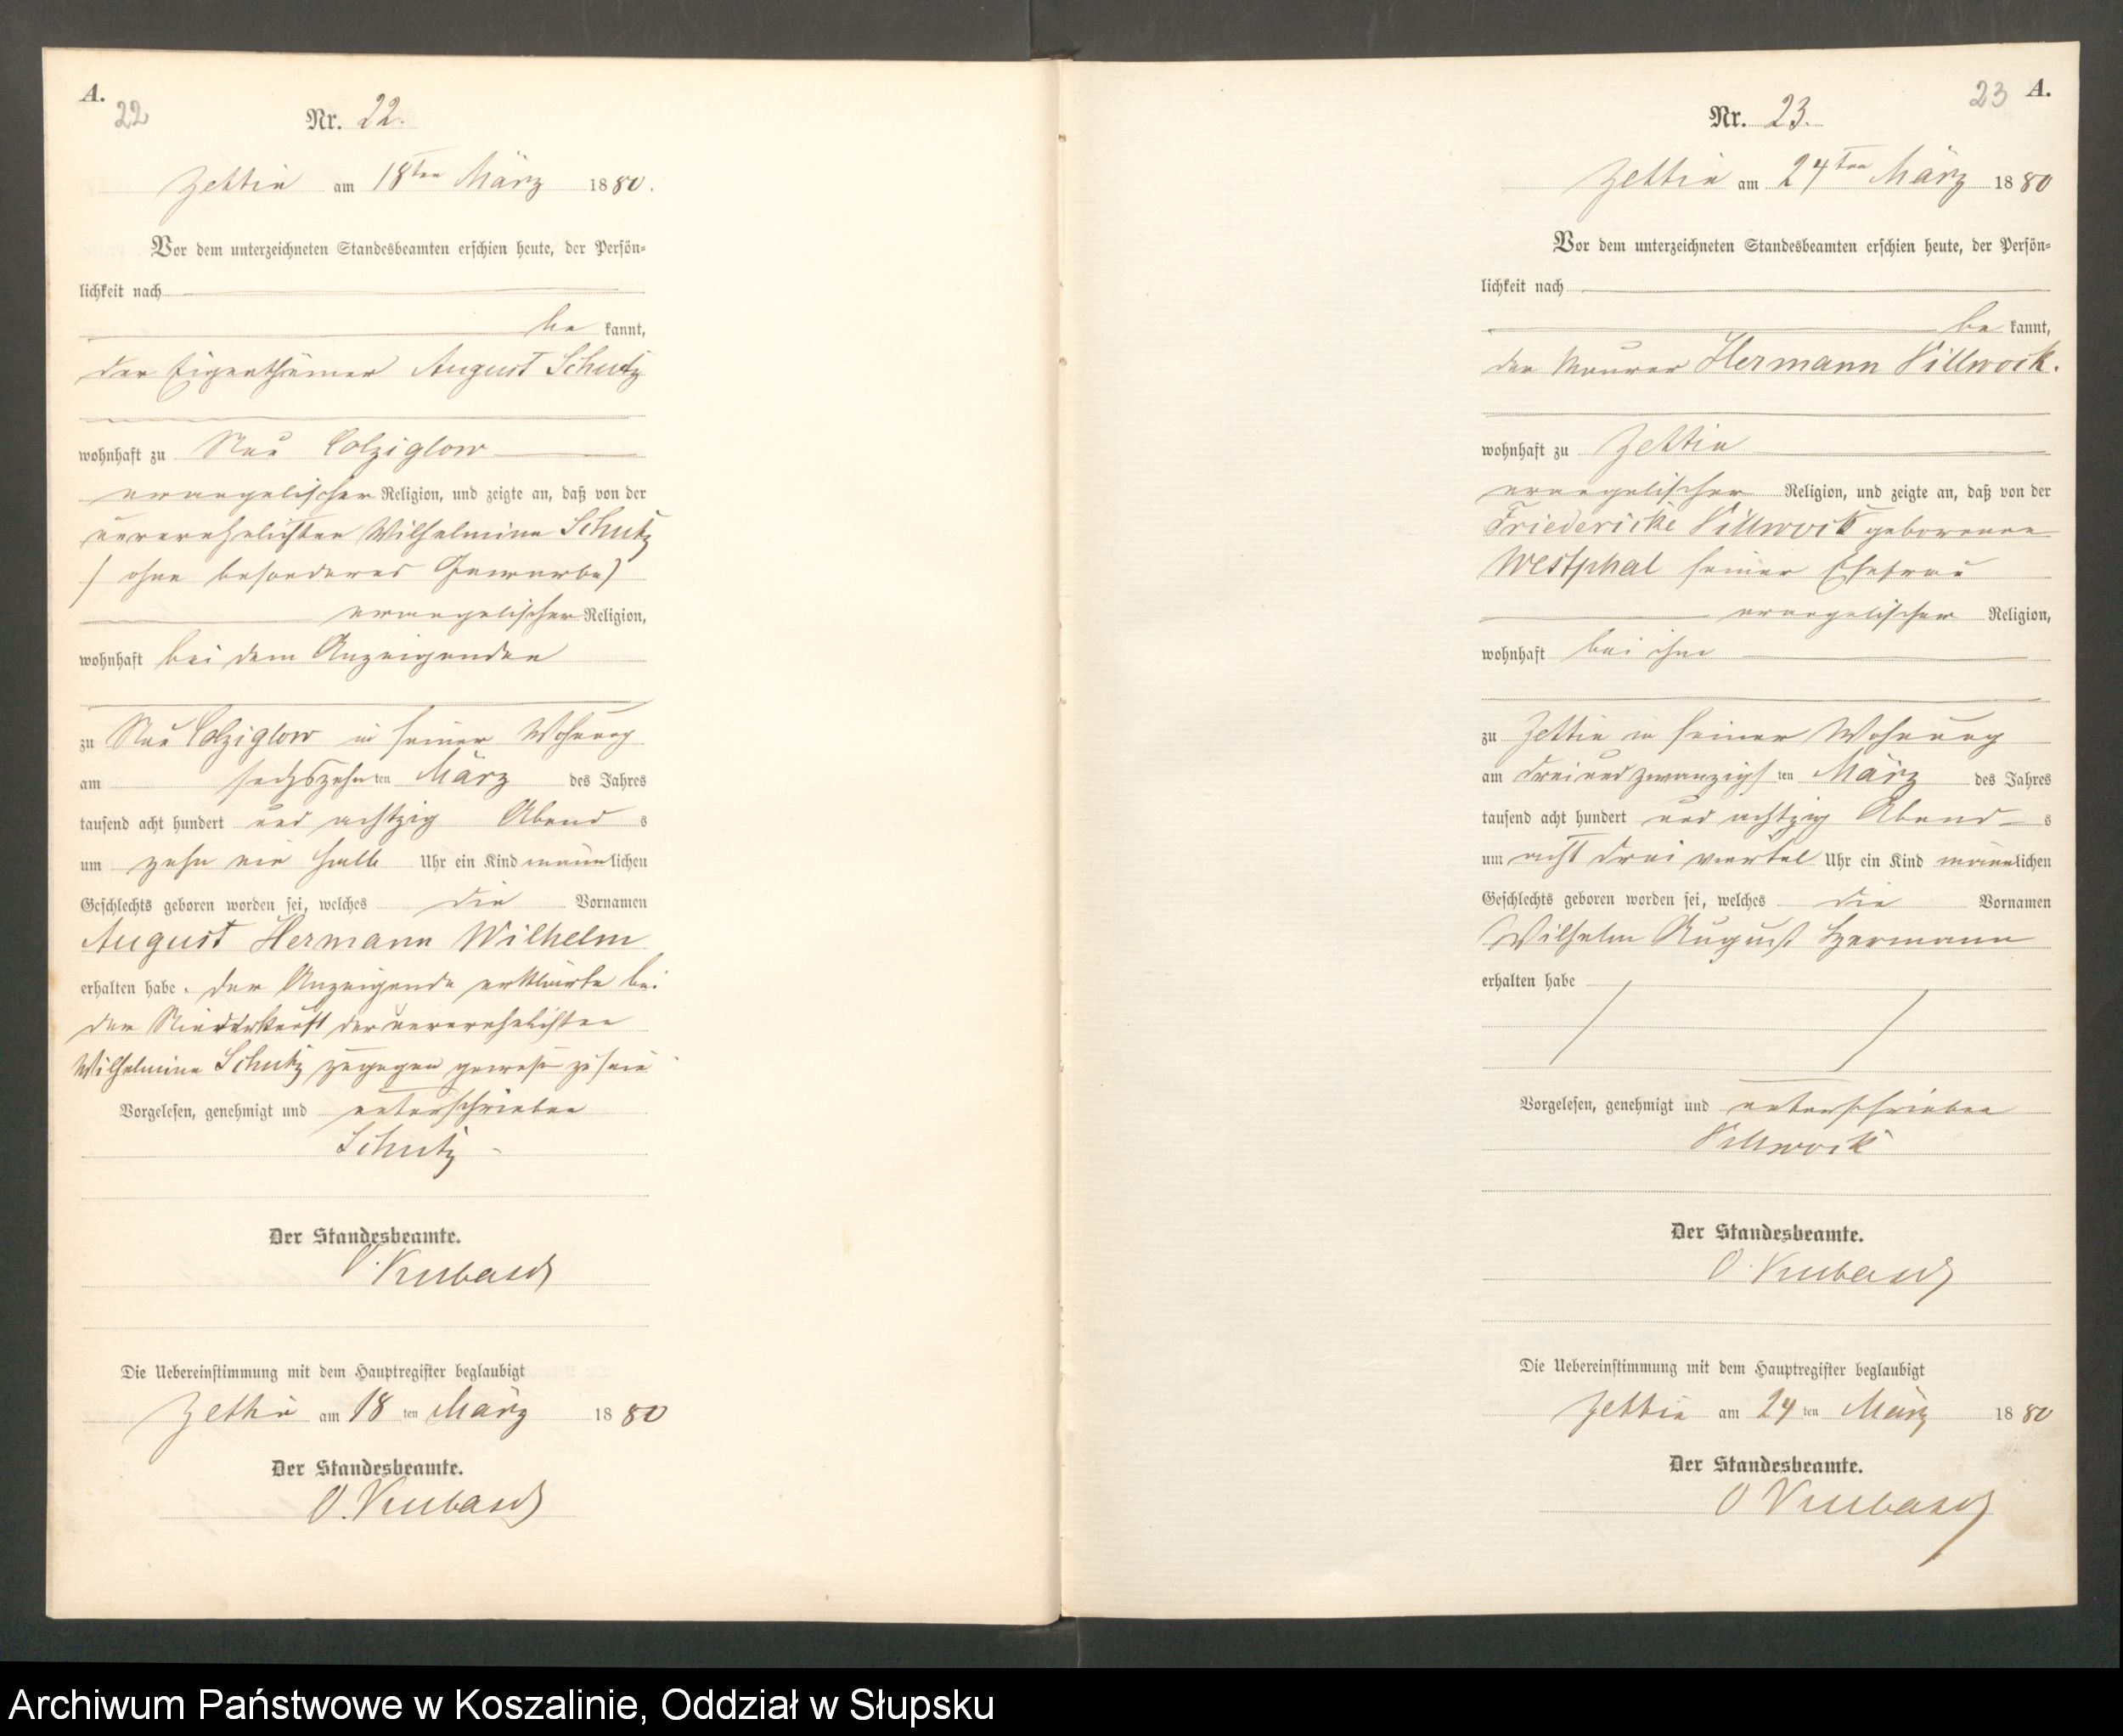 A.
22
Nr. 22.
Zettin am 18ten März 1880.
Vor dem unterzeichneten Standesbeamten erschien heute, der Persön-
lichkeit nach
be kannt,
der Eigenthümer August Schutz
wohnhaft zu Neu Colziglow
evangelischer Religion, und zeigte an, daß von der
unverehelichten Wilhelmine Schutz
(ohne besonderes Gewerbe)
evangelischer Religion,
wohnhaft bei dem Anzeigenden
zu Neu Colziglow in seiner Wohnung
am sechszehnten März des Jahres
tausend acht hundert und achtzig Abends
um zehn ein halb Uhr ein Kind männlichen
Geschlechts geboren worden sei, welches die Vornamen
August Hermann Wilhelm
erhalten habe. der Anzeigende erklärte bei
der Niederkunft der unverehelichten
Wilhelmine Schutz zugegen gewesen zu sein
Vorgelesen, genehmigt und unterschrieben
Schutz
Der Standesbeamte.
O. Kubasch
Die Uebereinstimmung mit dem Hauptregister beglaubigt
Zettin am 18ten März 1880
Der Standesbeamte.
O. Kubasch
23 A.
Nr. 23.
Zettin am 24ten März 1880
Vor dem unterzeichneten Standesbeamten erschien heute, der Persön-
lichkeit nach
be kannt,
der Maurer Hermann Villwock.
wohnhaft zu Zettin
evangelischer Religion, und zeigte an, daß von der
Friedericke Villwock geborenen
Westphal seiner Ehefrau
evangelischer Religion,
wohnhaft bei ihm
zu Zettin in seiner Wohnung
am dreiundzwanzigsten März des Jahres
tausend acht hundert und achtzig Abends
um acht drei viertel Uhr ein Kind männlichen
Geschlechts geboren worden sei, welches die Vornamen
Wilhelm August Hermann
erhalten habe
Vorgelesen, genehmigt und unterschrieben
Villwock
Der Standesbeamte.
O. Kubasch
Die Uebereinstimmung mit dem Hauptregister beglaubigt
Zettin am 24ten März 1880
Der Standesbeamte.
O Kubasch
Archiwum Państwowe w Koszalinie, Oddział w Słupsku